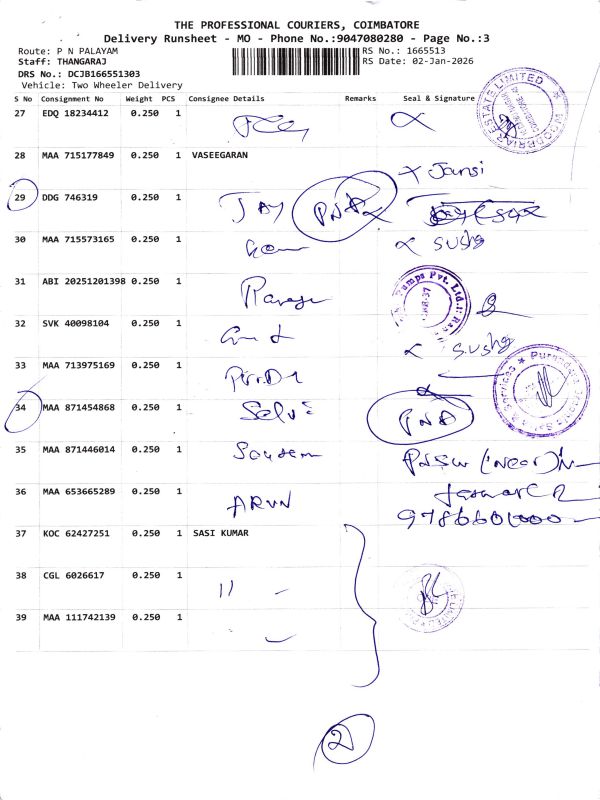 THE PROFESSIONAL COURIERS, COIMBATORE
Delivery Runsheet - MO - Phone No.:9047080280 - Page No.:3
Route: P N PALAYAM
RS No.: 1665513
Staff: THANGARAJ
RS Date: 02-Jan-2026
DRS No.: DCJB166551303
Vehicle: Two Wheeler Delivery
S No Consignment No Weight PCS Consignee Details Remarks Seal & Signature
27 EDQ 18234412 0.250 1
28 MAA 715177849 0.250 1 VASEEGARAN
Jansi
29 DDG 746319 0.250 1 JAY PNA
30 MAA 715573165 0.250 1 sushg
31 ABI 20251201398 0.250 1
32 SVK 40098104 0.250 1 sushg
33 MAA 713975169 0.250 1
34 MAA 871454868 0.250 1 Selvi PNA
35 MAA 871446014 0.250 1
36 MAA 653665289 0.250 1 ARUN
37 KOC 62427251 0.250 1 SASI KUMAR
38 CGL 6026617 0.250 1 11 -
39 MAA 111742139 0.250 1
2